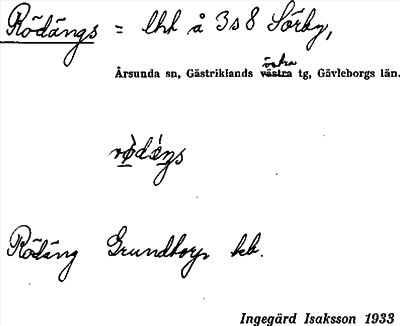 Rödängs = lht å 3s8 Sörby,
östra
Årsunda sn, Gästriklands västra tg, Gävleborgs län.
Rödäng Grundtorp
Ingegärd Isaksson 1933